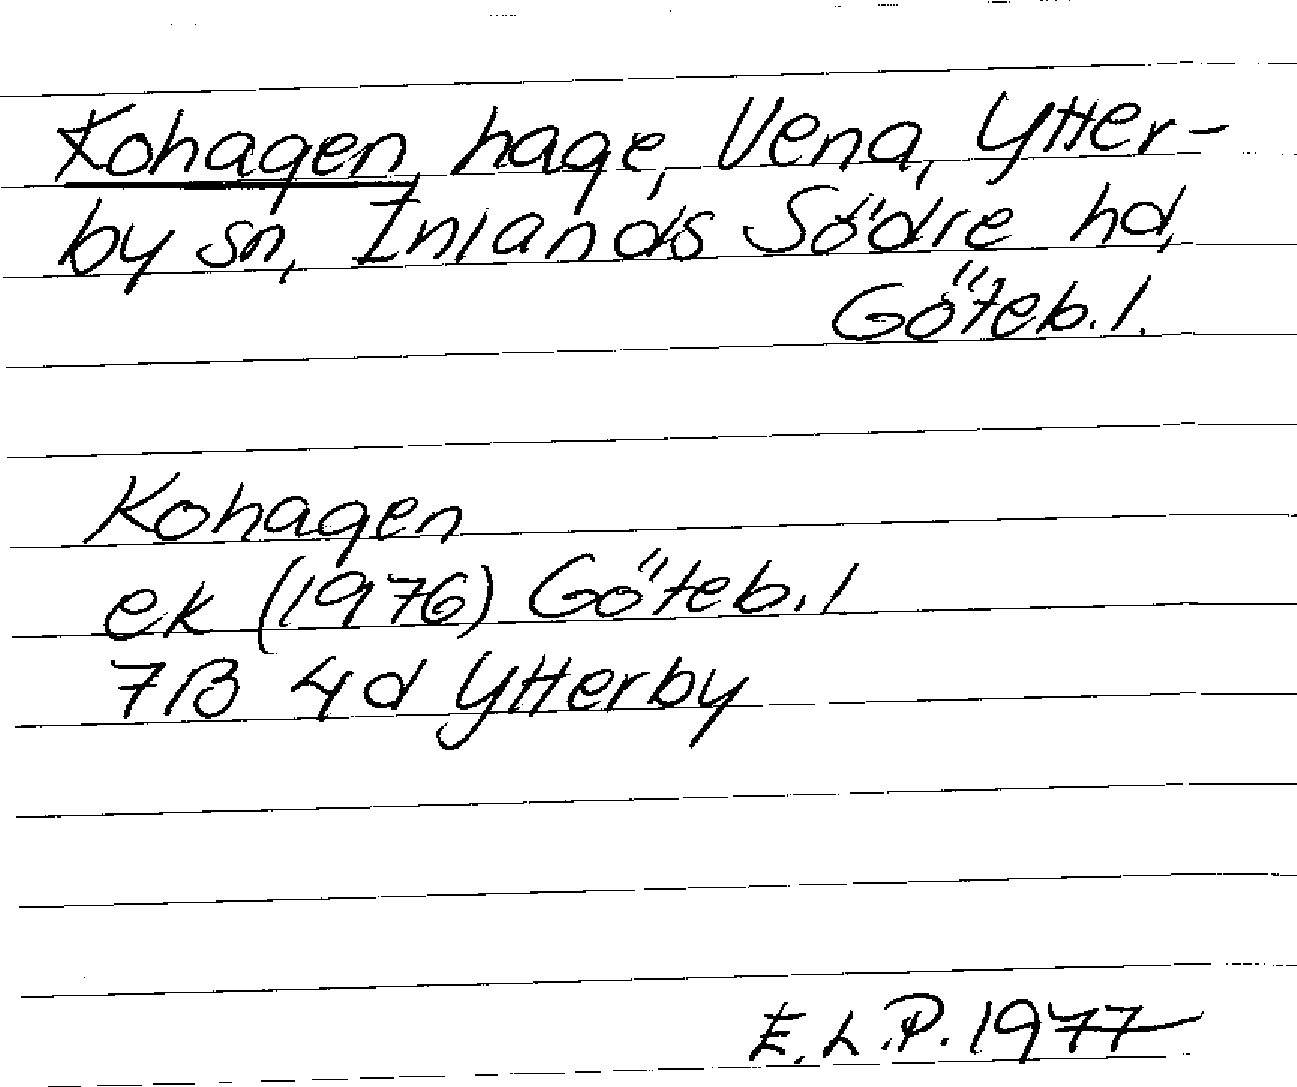 Kohagen, hage, Vena, Ytter-
by sn, Inlands Södre hd,
Göteb. l.
Kohagen
ek (1976) Göteb. l
7B 4d Ytterby
E.L.P. 1977